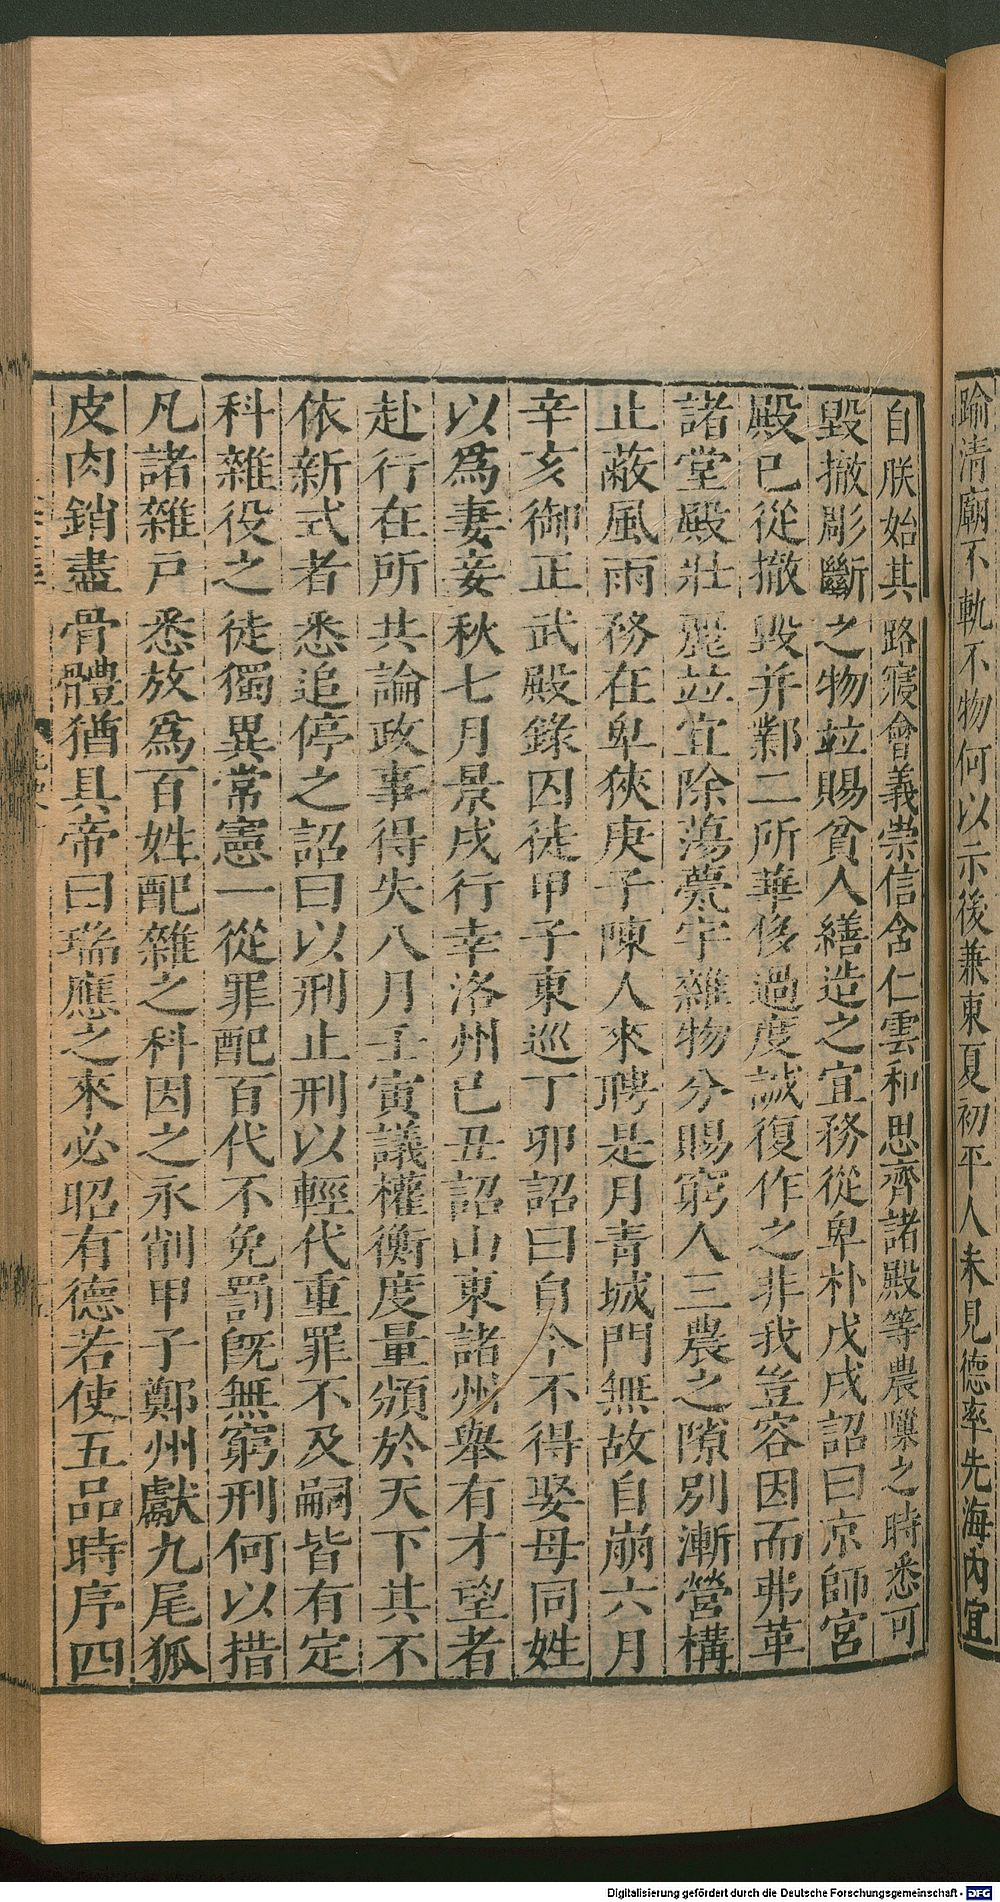 踰清廟不軌不物何以示後兼東夏初平人未見德率先海內宜
自朕始其路寢會義崇信含仁雲和思齊諸殿等農隟之時悉可
毀撤彫斲之物竝賜貧人繕造之宜務從卑朴戊戌詔曰京師宮
殿已從撤毀并鄴二所華侈過度誠復作之非我豈容因而弗革
諸堂殿壯麗竝宜除蕩甍宇雜物分賜窮人三農之隙別漸營構
止蔽風雨務在卑狹庚子陳人來聘是月青城門無故自崩六月
辛亥御正武殿錄囚徒甲子東巡丁卯詔曰自今不得娶母同姓
以爲妻妾秋七月景戌行幸洛州已丑詔山東諸州舉有才望者
赴行在所共論政事得失八月壬寅議權衡度量頒於天下其不
依新式者悉追停之詔曰以刑止刑以輕代重罪不及嗣皆有定
科雜役之徒獨異常憲一從罪配百代不免罰旣無窮刑何以措
凡諸雜戶悉放爲百姓配雜之科因之永削甲子鄭州獻九尾狐
皮肉銷盡骨體猶具帝曰瑞應之來必昭有德若使五品時序四
Digitalisierung gefördert durch die Deutsche Forschungsgemeinschaft - DFG